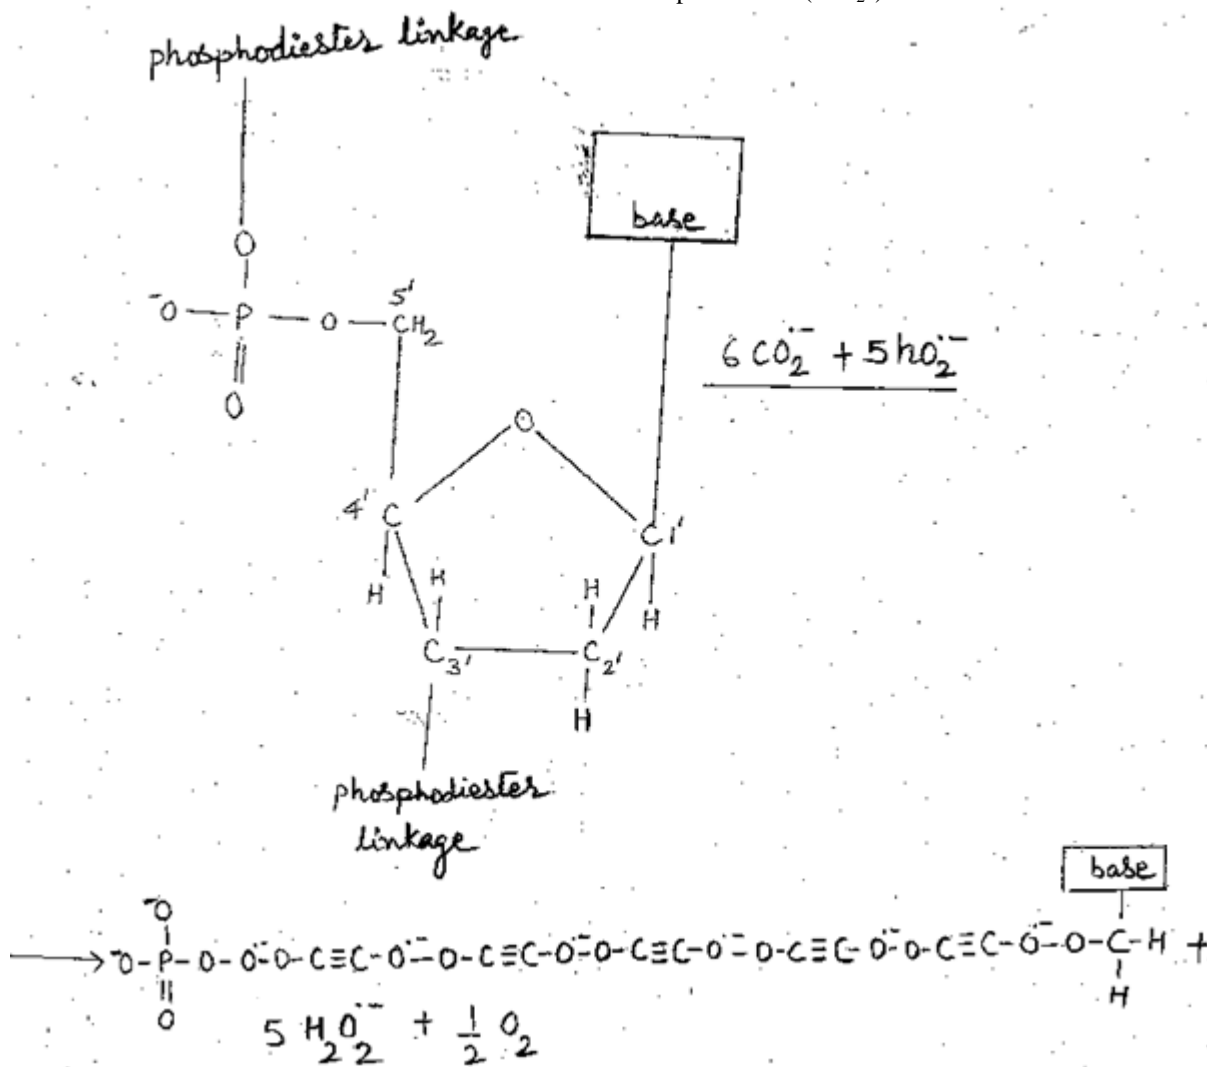 phosphodiester linkage
base
O
5'
⁻O — P — O — CH₂
O
6 CO₂˙⁻ + 5 hO₂˙⁻
O
4' C
C 1'
H
H
H
H
C₃'
C₂'
H
phosphodiester
linkage
base
⁻O
⁻O-P-O-O˙⁻O-C≡C-O˙⁻O-C≡C-O˙⁻O-C≡C-O˙⁻O-C≡C-O˙⁻O-C≡C-O˙⁻O-C-H +
O
H
5 H₂O₂˙⁻ + 1/2 O₂